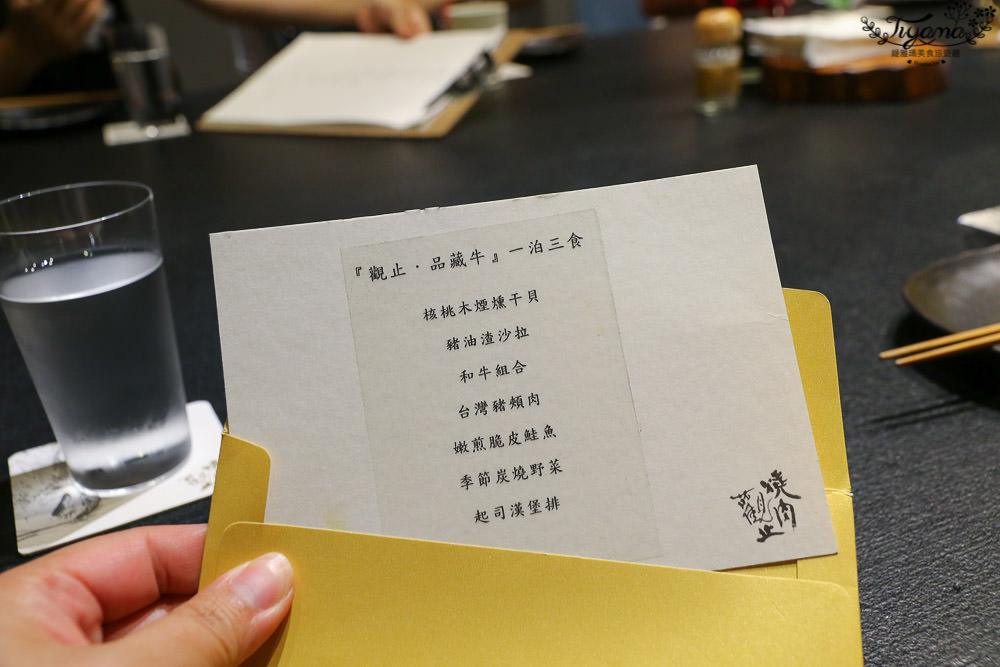 Tiyama
緹雅瑪美食旅遊趣
『觀止．品藏牛』一泊三食
核桃木煙燻干貝
豬油渣沙拉
和牛組合
台灣豬頰肉
嫩煎脆皮鮭魚
季節炭燒野菜
起司漢堡排
燒肉
觀止